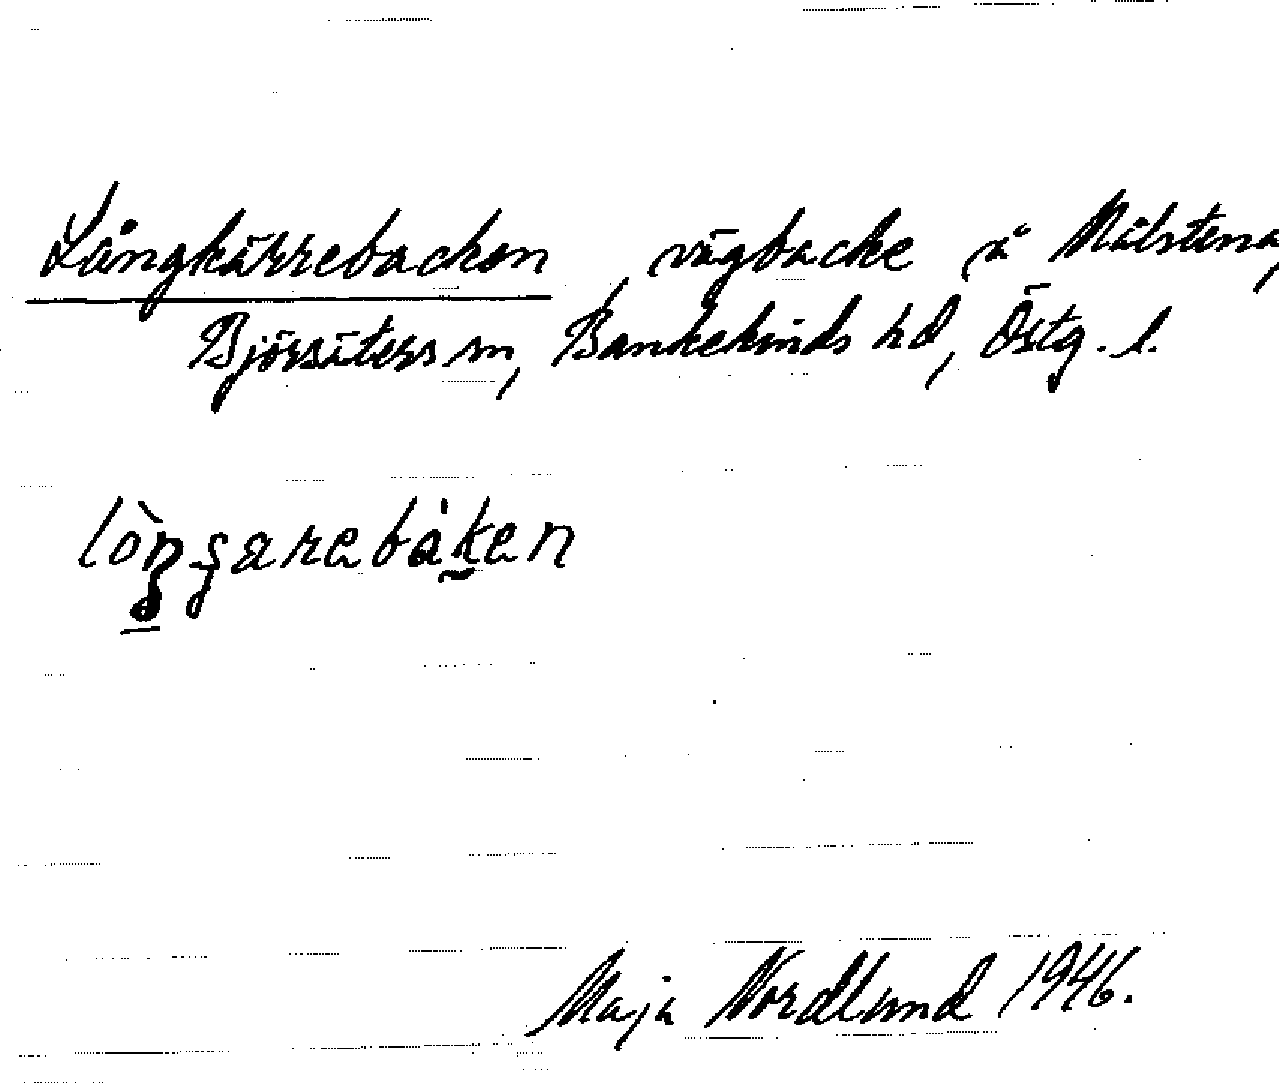 Långkärrebacken, vägbacke å Målstena,
Björsäters sn, Bankekinds hd, Östg. l.
lòŋʂarebàken
Maja Nordlund 1946.